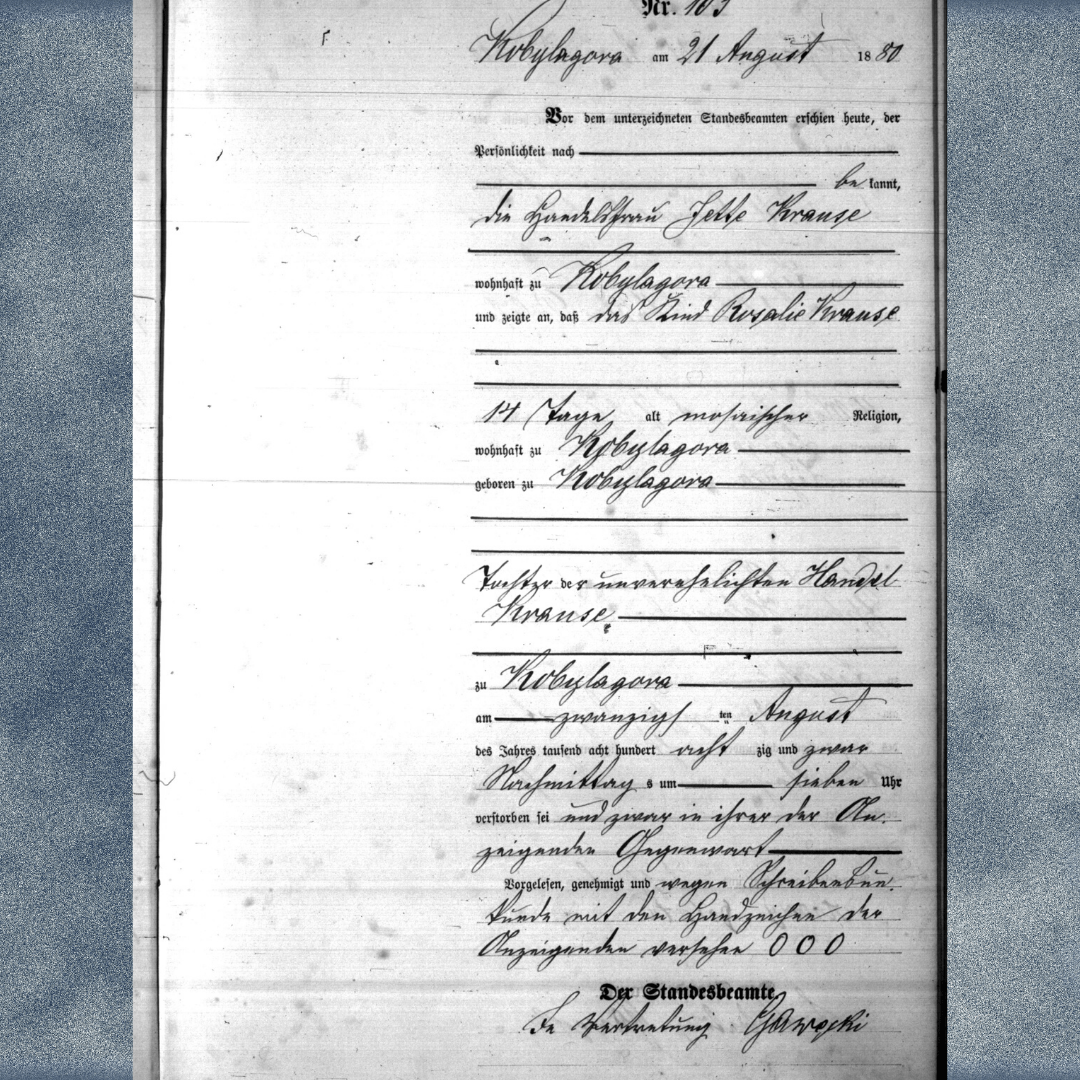 Nr. 103
Kobylagora am 21 August 1880
Vor dem unterzeichneten Standesbeamten erschien heute, der
Persönlichkeit nach
be kannt,
die Handelsfrau Jette Krause
wohnhaft zu Kobylagora
und zeigte an, daß das Kind Rosalie Krause
14 Tage alt mosaischer Religion,
wohnhaft zu Kobylagora
geboren zu Kobylagora
Tochter der unverehelichten Handel
Krause
zu Kobylagora
am zwanzigs ten August
des Jahres tausend acht hundert acht zig und zwar
Nachmittag s um sieben Uhr
verstorben sei und zwar in ihrer der An-
zeigenden Gegenwart
Vorgelesen, genehmigt und wegen Schreibensun-
kunde mit den Handzeichen der
Anzeigenden versehen O O O
Der Standesbeamte
In Vertretung